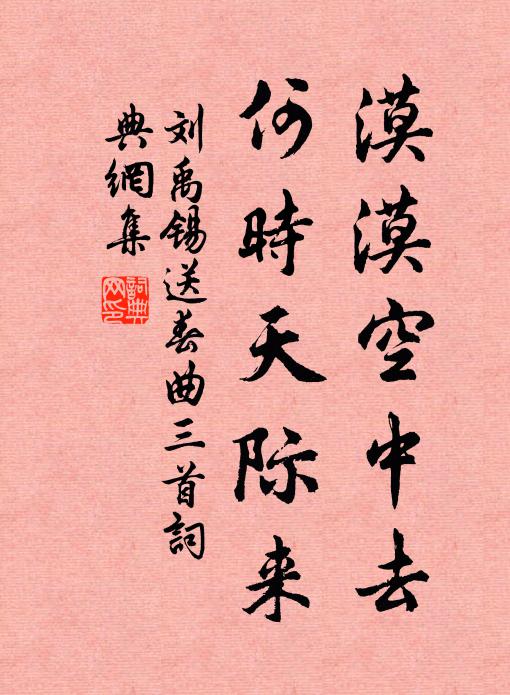 漠漠空中去
何時天际来
刘禹锡送春曲三首詞
典網集
詞典網印